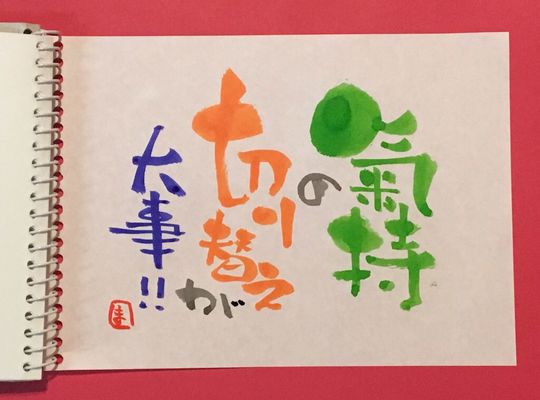 氣持
の
切り替え
が
大事!!